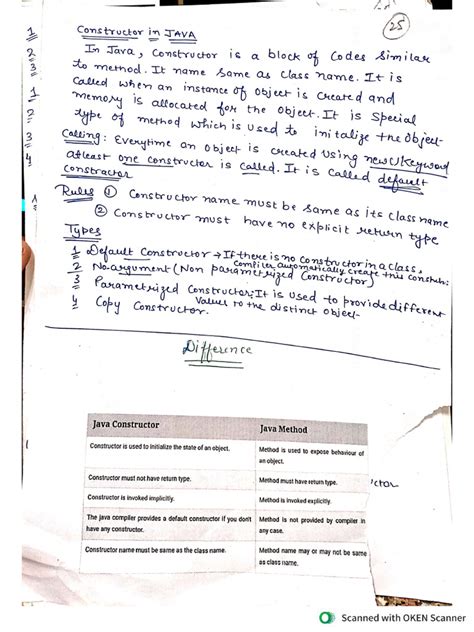 25
1 Constructor in JAVA
2 In Java, Constructor is a block of Codes Similar
3 to method. It name Same as class name. It is
1 Called when an instance of object is created and
memory is allocated for the object. It is special
2 type of method which is used to initalize the object
3 Calling: Everytime an object is created using new() Keyword
4 atleast one constructor is called. It is called default
constractor
1 Rules ① Constructor name must be same as its class name
② Constructor must have no explicit return type
Types
1 Default Constructor → If there is no constructor in a class,
Compiler automatically create this constru:
2 No-argument (Non parametrized Constructor)
3 Parametrized Constructor: It is used to provide different
Values to the distinct object
4 Copy Constructor.
Difference
Java Constructor Java Method
Constructor is used to initialize the state of an object. Method is used to expose behaviour of
an object.
Constructor must not have return type. Method must have return type.
ctor
Constructor is invoked implicitly. Method is invoked explicitly.
The java compiler provides a default constructor if you don't Method is not provided by compiler in
have any constructor. any case.
Constructor name must be same as the class name. Method name may or may not be same
as class name.
Scanned with OKEN Scanner